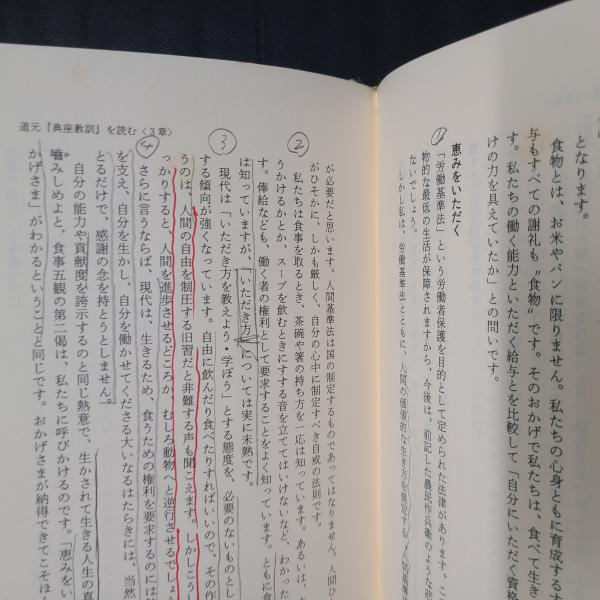 となります。
食物とは、お米やパンに限りません。私たちの心身ともに育成するす
与もすべての謝礼も〝食物〟です。そのおかげで私たちは、食べて生き
す。私たちの働く能力といただく給与とを比較して「自分にいただく資格
けの力を具えていたか」との問いです。
恵みをいただく
①
「労働基準法」という労働者保護を目的として定められた法律があります。こ
物的な最低の生活が保障されますから、今後は、前記した農民作兵衛のような悲
ないでしょう。
しかし私は、労働基準法とともに、人間の価値的な生き方を規定する「人間基準
が必要だと思います。人間基準法は国の制定するものであってはなりません。人間ひ
がひそかに、しかも厳しく、自分の心中に制定すべき自戒の法則です。
②
私たちは食事を取るとき、茶碗や箸の持ち方を一応は知っています。あるいは、
うかけるかとか、スープを飲むときにすする音を立ててはいけないなど、わかった
す。俸給なども、働く者の権利として要求することをよく知っています。ともに食
は知っていますが、「いただき方」については実に未熟です。
③
現代は「いただき方を教えよう・学ぼう」とする態度を、必要のないものとし
する傾向が強くなっています。自由に飲んだり食べたりすればいいので、その作
うのは、人間の自由を制圧する旧習だと非難する声も聞こえます。しかしこう
っかりすると、人間を進歩させるどころか、むしろ動物へと逆行させるでしょ
④
さらに言うならば、現代は、生きるため、食うための権利を要求するのには
を支え、自分を生かし、自分を働かせてくださる大いなるはたらきには、当然
とるだけで、感謝の念を持とうとしません。
自分の能力や貢献度を誇示するのと同じ熱意で、生かされて生きる人生の真
嚙みしめよと、食事五観の第二偈は、私たちに呼びかけるのです。「恵みをい
かげさま」がわかるということと同じです。おかげさまが納得できてこそほ
道元『典座教訓』を読む〈3章〉